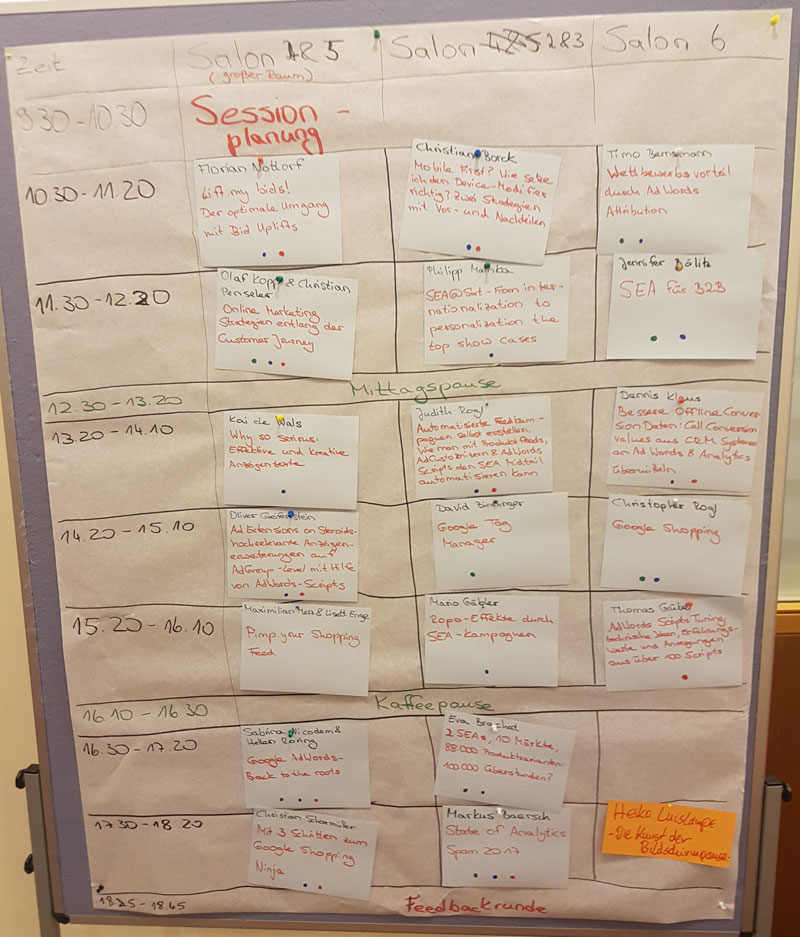 Zeit
Salon 4&5
(großer Raum)
Salon 2&3
Salon 6
9.30-10.30
Session-
planung
10.30-11.20
Florian Nottorf
Lift my bids!
Der optimale Umgang
mit Bid Uplifts
Christian Borck
Mobile First? Wie setze
ich den Device-Modifier
richtig? Zwei Strategien
mit Vor- und Nachteilen
Timo
Wettbewerbsvorteil
durch AdWords
Attribution
11.30-12.20
Olaf Kopp & Christian
Penseler
Online Marketing
Strategien entlang der
Customer Journey
Philipp
SEA@Sixt - From inter-
nationalization to
personalization the
top show cases
Jennifer Bölitz
SEA für B2B
12.30-13.20
Mittagspause
13.20-14.10
Kai de Wals
Why so serious:
Effektive und kreative
Anzeigentexte
Judith Rogl
Automatisierte Feedkam-
pagnen selbst erstellen,
Wie man mit Produktfeeds,
AdCustomizern & AdWords
Scripts den SEA Midtail
automatisieren kann
Dennis Klaus
Bessere Offline Conver-
sion Daten: Call Conversion
values aus CRM Systemen
an AdWords & Analytics
übermitteln
14.20-15.10
Oliver
Ad Extensions on Steroids-
hochrelevante Anzeigen-
erweiterungen auf
AdGroup-Level mit Hilfe
von AdWords-Scripts
David
Google Tag
Manager
Christopher Rogl
Google Shopping
15.20-16.10
Maximilian & Lisett Enge
Pimp your Shopping
Feed
Mario Gäbler
Ropo-Effekte durch
SEA-Kampagnen
Thomas Grübel
AdWords Scripts Tuning
technische Ideen, Erfahrungs-
werte und Anregungen
aus über 100 Scripts
16.10-16.30
Kaffeepause
16.30-17.20
Sabrina Nicodem &
Hellen Roring
Google AdWords-
Back to the roots
Eva
2 SEAs, 10 Märkte,
88.000 Produktvarianten
100.000 Überstunden?
17.30-18.20
Christian
Mit 3 Schritten zum
Google Shopping
Ninja
Markus Baersch
State of Analytics
Spam 2017
Heiko
-Die Kunst der
Bildschirmpause-
18.25-18.45
Feedbackrunde